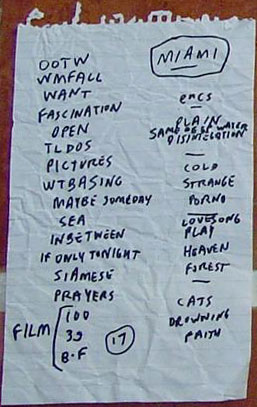 MIAMI
OOTW
WMFALL
WANT
FASCINATION
OPEN
TLDOS
PICTURES
WTBASING
MAYBE SOMEDAY
SEA
INBETWEEN
IF ONLY TONIGHT
SIAMESE
PRAYERS
FILM
100
39
B.F
17
encs
PLAIN
SAME DEEP WATER
DISINTEGRATION
COLD
STRANGE
PORNO
LOVESONG
PLAY
HEAVEN
FOREST
CATS
DROWNING
FAITH